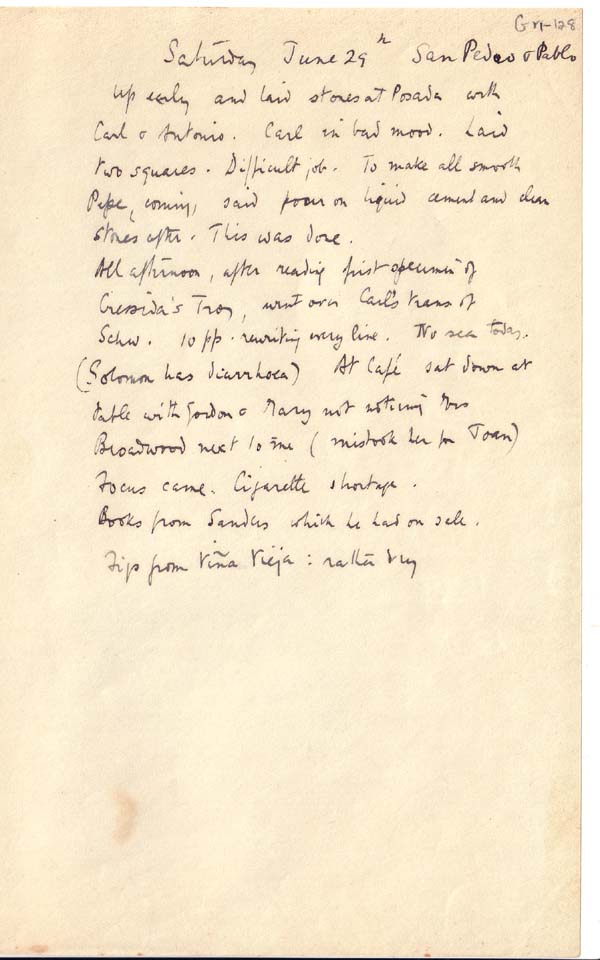 GM-128
Saturday June 29th San Pedro & Pablo
Up early and laid stones at Posada with
Carl & Antonio. Carl in bad mood. Laid
two squares. Difficult job. To make all smooth
Pepe, coming, said pour on liquid cement and clean
stones after. This was done.
All afternoon, after reading first specimen of
Cressida's Troy, went over Carl's trans of
Schw. 10 pp. rewriting every line. No sea today.
(Solomon has diarrhoea) At Café sat down at
table with Gordon & Mary not noticing Mrs
Broadwood next to me (mistook her for Joan)
Focus came. Cigarette shortage.
Books from Sanders which he had on sale.
Figs from Viña Vieja: rather dry